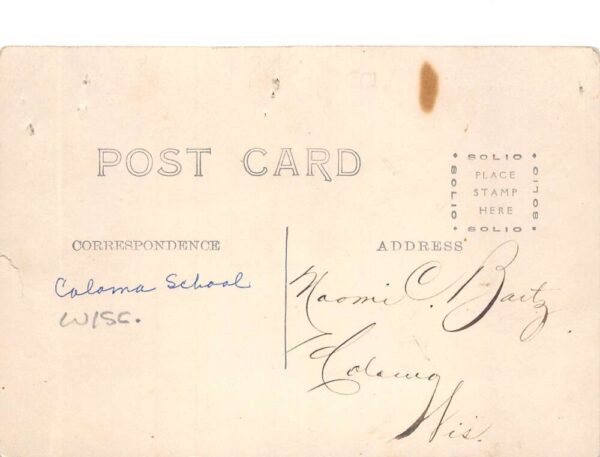 POST CARD
SOLIO
SOLIO
PLACE
STAMP
HERE
SOLIO
SOLIO
CORRESPONDENCE
ADDRESS
Coloma School
WISC.
Naomi C. Bartz
Coloma
Wis.